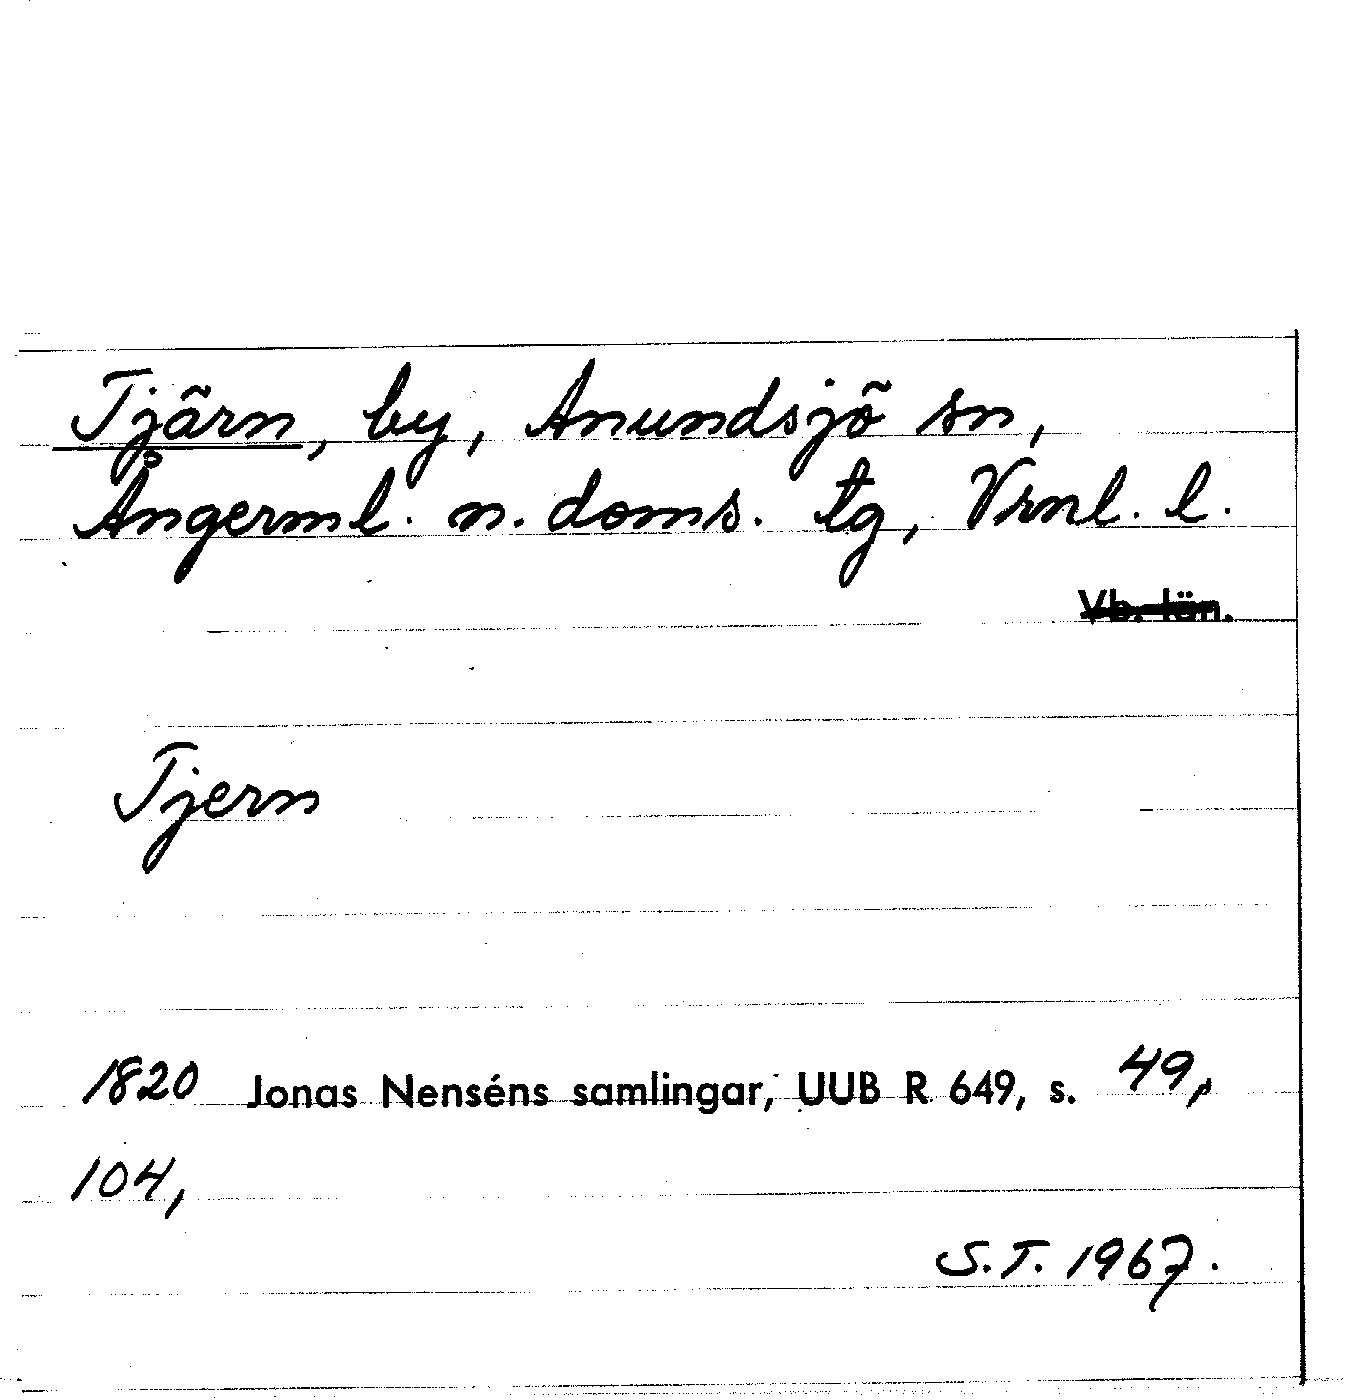 Tjärn, by, Anundsjö sn,
Ångerml. n. doms. tg, Vrnl. l.
Vb. län.
Tjern
1820 Jonas Nenséns samlingar, UUB R 649, s. 49,
104,
S.T. 1967.